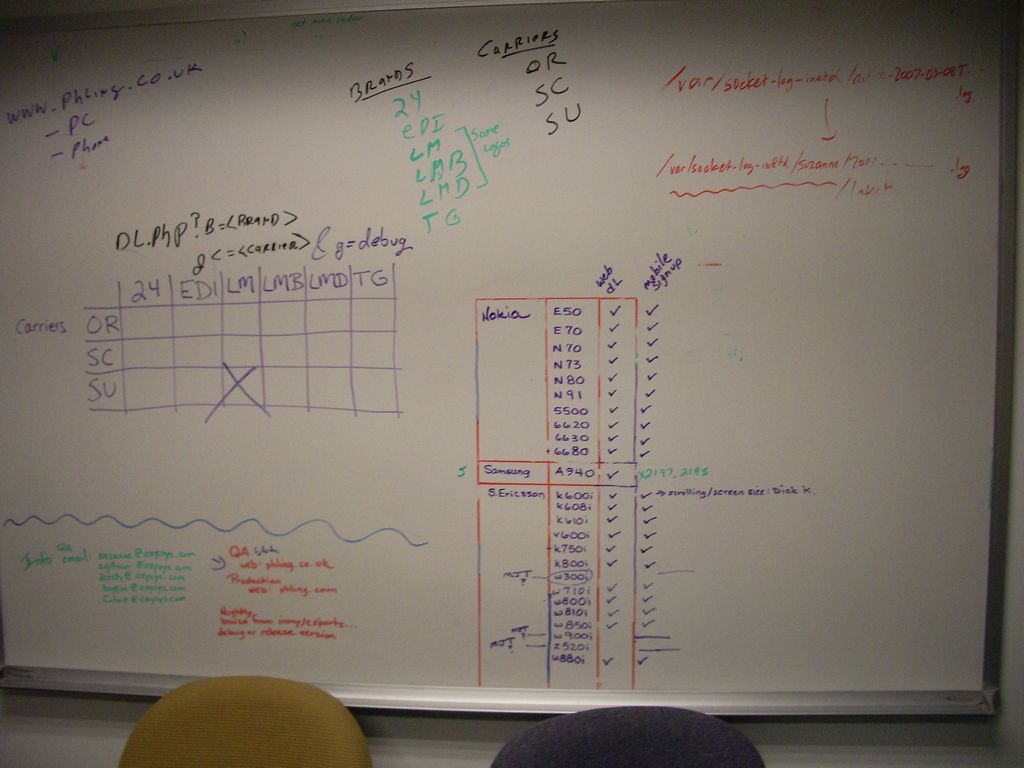 get men order
www.Phling.co.uk
- PC
- Phone
BRANDS
24
eDI
LM
LAB
LMD
TG
Same
logos
CARRIERS
OR
SC
SU
/var/socket-log-inetd/ 2007-03-08T
.log
/var/socket-log-inetd/suzanne/2007 .log
DL.PhP?B=<BRAND>
& C=<CARRIER> & g=debug
24 EDI LM LMB LMD TG
Carriers OR
SC
SU
web DL
mobile signup
Nokia E50 ✓ ✓
E70 ✓ ✓
N70 ✓ ✓
N73 ✓ ✓
N80 ✓ ✓
N91 ✓ ✓
5500 ✓ ✓
6620 ✓ ✓
6630 ✓ ✓
6680 ✓ ✓
Samsung A940 ✓ x2197, 2198
S.Ericsson k600i ✓ ✓ → scrolling/screen size: Dick K.
k608i ✓ ✓
k610i ✓ ✓
v600i ✓ ✓
k750i ✓ ✓
k800i ✓ ✓
MJT? w300i
w710i ✓ ✓
w800i ✓ ✓
w810i ✓ ✓
w850i ✓ ✓
MJT? w900i
MJT? z520i
w880i ✓ ✓
QA
Info email: suzanne@
QA
web: phling.co.uk
Production
web: phling.com
Nightly
built from irony/exports...
debug or release version